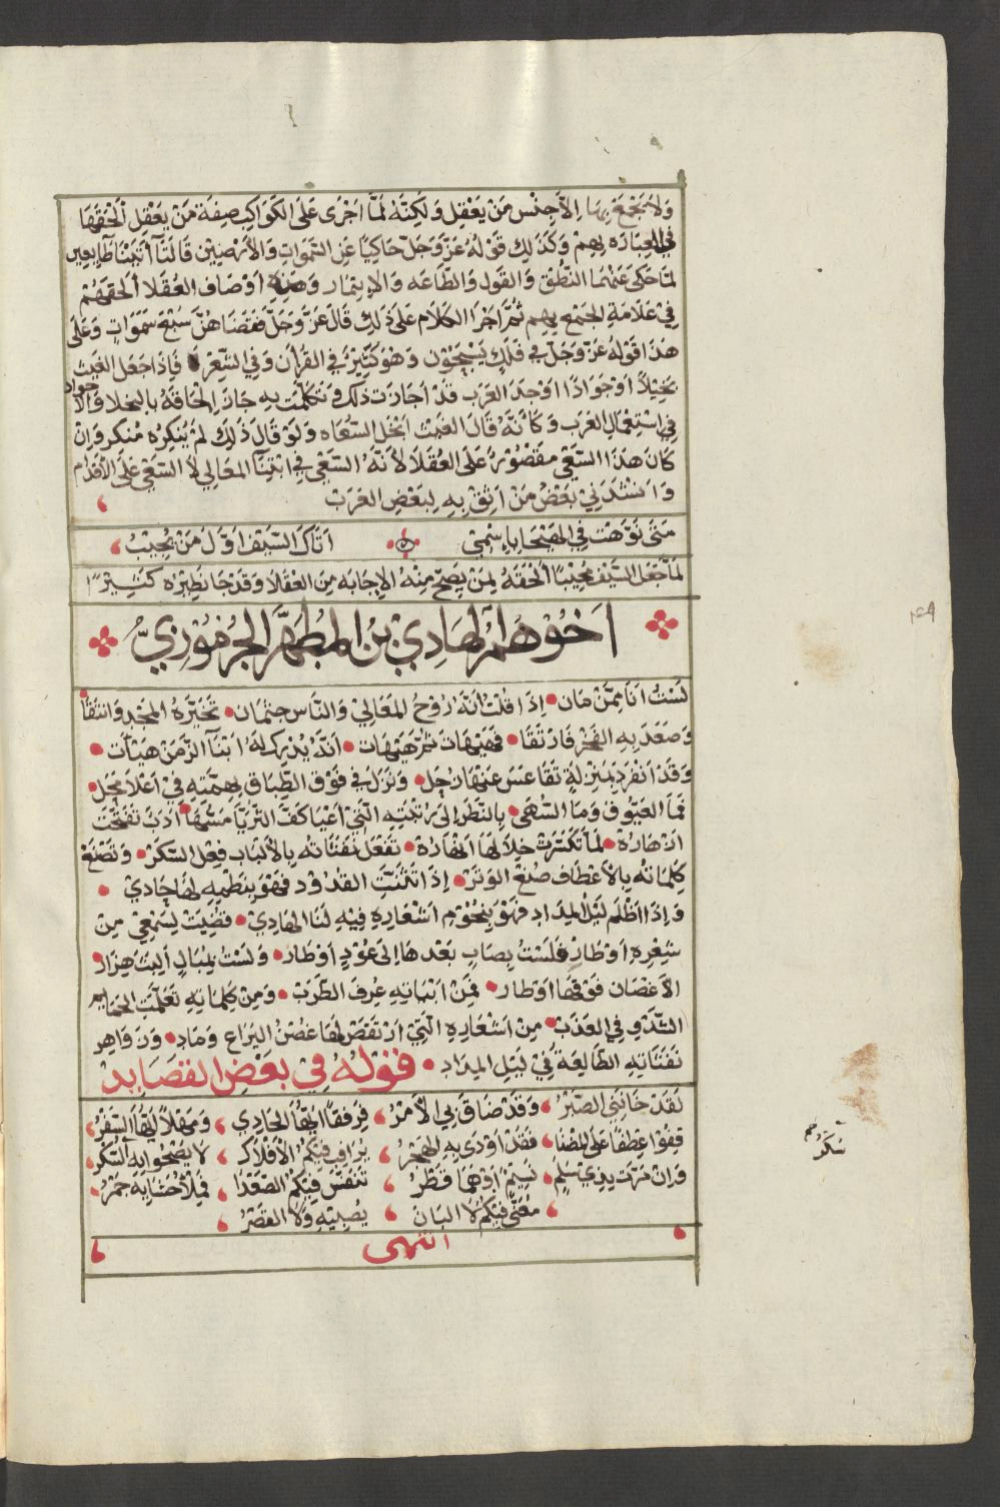 ولا يجمع بها إلا جنس من يعقل ولكنه لما اجرى على الكواكب صفة من يعقل ألحقها
في العباره بهم وكذلك قوله عز وجل حاكيا عن السموات والأرضين قالتا أتينا طايعين
لما حكى عنهما النطق والقول والطاعه والايتمار وهذه اوصاف العقلا ألحقهم
في علامة الجمع بهم ثم اجرا الكلام على ذلك قال عز وجل فقضاهن سبع سموات وعلى
هذا قوله عز وجل في فلك يسبحون وهو كثير في القرأن وفي الشعر فاذا جعل الغيث
بخيلا او جوادا اوجد العرب قد اجازت ذلك وتكلمت به جاز إلحاقه بالبخلا والأجواد
في استعمال العرب وكأنه قال الغيث ابخل السعاه ولو قال ذلك لم ينكره منكر وان
كان هذا السعي مقصورا على العقلا لأنه السعي في ابتنآ المعالي لا السعي على الأقدام
وانشدني بعض من اثق به لبعض العرب
متى نوهت في الهيجا باسمي ٥ اتاك السيف اول من يجيب
لما جعل السيف مجيبا ألحقه بمن يصح منه الاجابه من العقلا وقد جا نظيره كثيرا
اخوهم الهادي بن المطهر الجرموزي
لست انا ممن مان اذا قلت أنه روح المعالي والناس جثمان تخيره المجد وانتقا
وصعد به الفخر فارتقا فهيهات ثم هيهات اند يدرك له ابنآ الزمن هيئات
وقد انفرد بمنزلة تقاعس عنها زحل ونزل في فوق الطباق بهمته في اعلا محل
فما العيوق وما السهى بالنظر الى رتبته التي اعيا كف الثريا مسها ادب تفتحت
ازهاره لما تكسرت خلالها انهاره تفعل نفثاته بالألباب فعل السكر وتصنع
كلماته بالأعطاف صنع الوتر اذا تثنت القدود فهو بنظمه لها حادي
واذا اظلم ليل المداد فهو بنجوم اشعاره فيه لنا الهادي قضيت لسمعي من
شعره اوطار فلست بصاب بعدها الى عود اوطار ولست بمبال أبت هزار
الأغصان فوقها اوطار فمن ابياته عرف الطرب ومن كلماته تعلمت الحمايم
الشدو في العذب من اشعاره التي ارتقص لها غصن اليراع وماد وزواهر
نفثاته الطالعة في ليل المداد فقوله في بعض القصايد
لقد خانني الصبر وقد ضاق بي الأمر فرفقا ايها الحادي ومهلا ايها السفر
قفوا عطفا على المضنا فقد اودى به الهجر يراقب فيكم الأفلاك لا يصحوا به السكر
وان مرت بذي سلم نسيم اوهما قطر تنفس فيكم الصعدا فملأ حشايه جمر
معنى فيكم لا البان يصبيه ولا القصر
انتهى
سكر صح